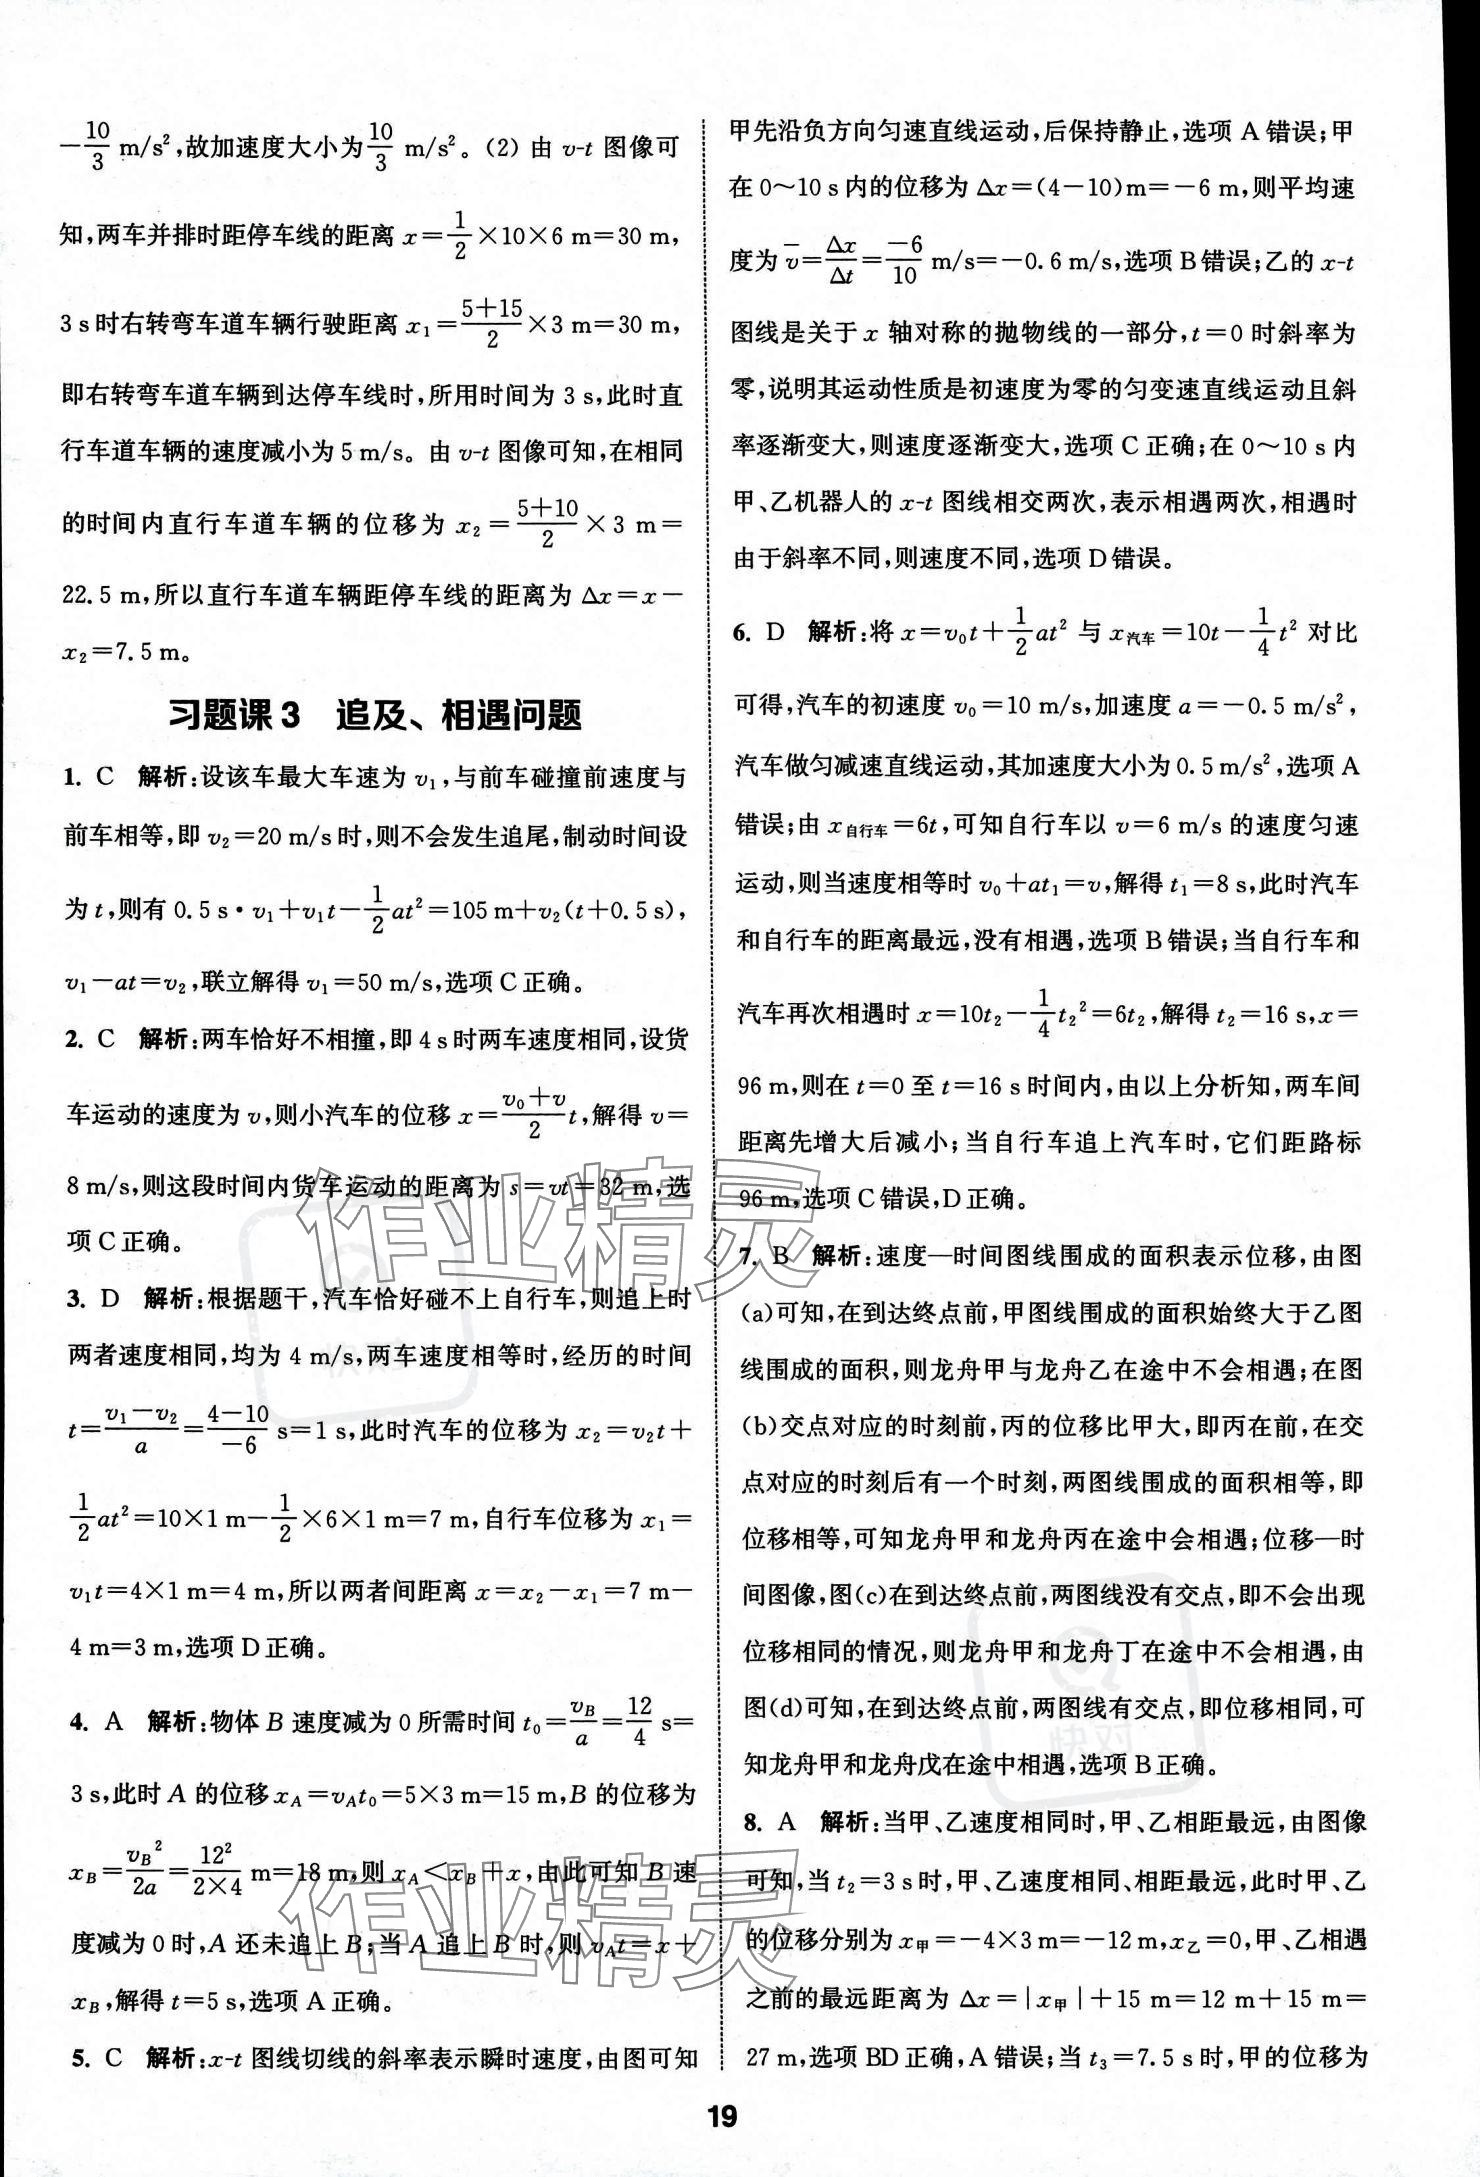 -10/3 m/s²,故加速度大小为10/3 m/s²。(2) 由 v-t 图像可
知,两车并排时距停车线的距离 x=1/2×10×6 m=30 m,
3 s时右转弯车道车辆行驶距离 x₁=(5+15)/2×3 m=30 m,
即右转弯车道车辆到达停车线时,所用时间为 3 s,此时直
行车道车辆的速度减小为 5 m/s。由 v-t 图像可知,在相同
的时间内直行车道车辆的位移为 x₂=(5+10)/2×3 m=
22.5 m,所以直行车道车辆距停车线的距离为 Δx=x-
x₂=7.5 m。
习题课 3 追及、相遇问题
1. C 解析:设该车最大车速为 v₁,与前车碰撞前速度与
前车相等,即 v₂=20 m/s时,则不会发生追尾,制动时间设
为 t,则有 0.5 s·v₁+v₁t-1/2at²=105 m+v₂(t+0.5 s),
v₁-at=v₂,联立解得 v₁=50 m/s,选项 C 正确。
2. C 解析:两车恰好不相撞,即 4 s时两车速度相同,设货
车运动的速度为 v,则小汽车的位移 x=(v₀+v)/2 t,解得 v=
8 m/s,则这段时间内货车运动的距离为 s=vt=32 m,选
项 C 正确。
3. D 解析:根据题干,汽车恰好碰不上自行车,则追上时
两者速度相同,均为 4 m/s,两车速度相等时,经历的时间
t=(v₁-v₂)/a=(4-10)/(-6) s=1 s,此时汽车的位移为 x₂=v₂t+
1/2at²=10×1 m-1/2×6×1 m=7 m,自行车位移为 x₁=
v₁t=4×1 m=4 m,所以两者间距离 x=x₂-x₁=7 m-
4 m=3 m,选项 D 正确。
4. A 解析:物体 B 速度减为 0 所需时间 t₀=v_B/a=12/4 s=
3 s,此时 A 的位移 x_A=v_At₀=5×3 m=15 m,B 的位移为
x_B=v_B²/2a=12²/(2×4) m=18 m,则 x_A<x_B+x,由此可知 B 速
度减为 0 时,A 还未追上 B;当 A 追上 B 时,则 v_At=x+
x_B,解得 t=5 s,选项 A 正确。
5. C 解析:x-t 图线切线的斜率表示瞬时速度,由图可知
甲先沿负方向匀速直线运动,后保持静止,选项 A 错误;甲
在 0~10 s内的位移为 Δx=(4-10)m=-6 m,则平均速
度为 v̄=Δx/Δt=-6/10 m/s=-0.6 m/s,选项 B 错误;乙的 x-t
图线是关于 x 轴对称的抛物线的一部分,t=0 时斜率为
零,说明其运动性质是初速度为零的匀变速直线运动且斜
率逐渐变大,则速度逐渐变大,选项 C 正确;在 0~10 s 内
甲、乙机器人的 x-t 图线相交两次,表示相遇两次,相遇时
由于斜率不同,则速度不同,选项 D 错误。
6. D 解析:将 x=v₀t+1/2at² 与 x汽车=10t-1/4t² 对比
可得,汽车的初速度 v₀=10 m/s,加速度 a=-0.5 m/s²,
汽车做匀减速直线运动,其加速度大小为 0.5 m/s²,选项 A
错误;由 x自行车=6t,可知自行车以 v=6 m/s 的速度匀速
运动,则当速度相等时 v₀+at₁=v,解得 t₁=8 s,此时汽车
和自行车的距离最远,没有相遇,选项 B 错误;当自行车和
汽车再次相遇时 x=10t₂-1/4t₂²=6t₂,解得 t₂=16 s,x=
96 m,则在 t=0 至 t=16 s时间内,由以上分析知,两车间
距离先增大后减小;当自行车追上汽车时,它们距路标
96 m,选项 C 错误,D 正确。
7. B 解析:速度—时间图线围成的面积表示位移,由图
(a)可知,在到达终点前,甲图线围成的面积始终大于乙图
线围成的面积,则龙舟甲与龙舟乙在途中不会相遇;在图
(b)交点对应的时刻前,丙的位移比甲大,即丙在前,在交
点对应的时刻后有一个时刻,两图线围成的面积相等,即
位移相等,可知龙舟甲和龙舟丙在途中会相遇;位移—时
间图像,图(c)在到达终点前,两图线没有交点,即不会出现
位移相同的情况,则龙舟甲和龙舟丁在途中不会相遇,由
图(d)可知,在到达终点前,两图线有交点,即位移相同,可
知龙舟甲和龙舟戊在途中相遇,选项 B 正确。
8. A 解析:当甲、乙速度相同时,甲、乙相距最远,由图像
可知,当 t₂=3 s时,甲、乙速度相同、相距最远,此时甲、乙
的位移分别为 x甲=-4×3 m=-12 m,x乙=0,甲、乙相遇
之前的最远距离为 Δx=|x甲|+15 m=12 m+15 m=
27 m,选项 BD 正确,A 错误;当 t₃=7.5 s时,甲的位移为
19
作业精灵
作业精灵
快对
快对